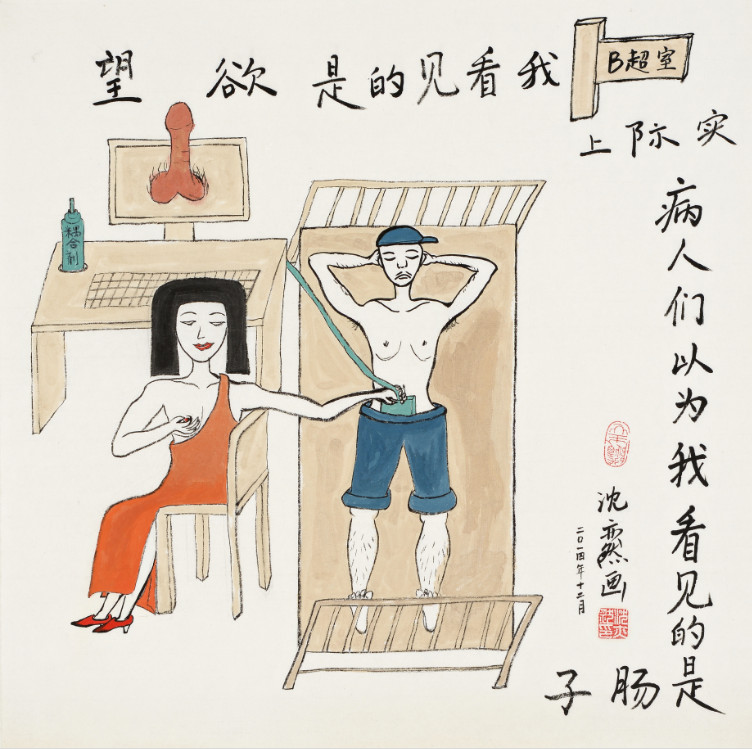 B超室
病人们以为我看见的是
肠子
实际上
我看见的是欲望
耦合剂
沈亦然画
二〇一四年十二月